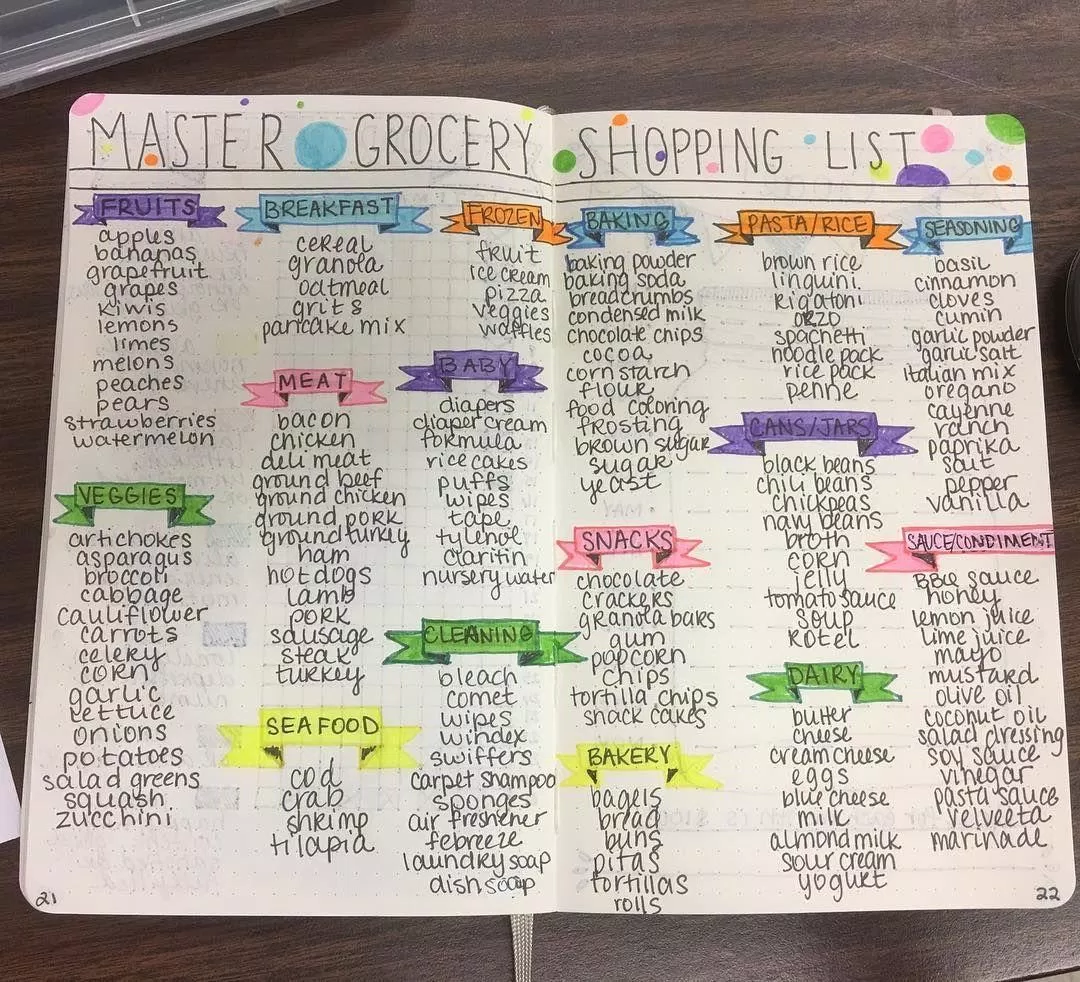 MASTER GROCERY SHOPPING LIST
FRUITS
apples
bananas
grapefruit
grapes
kiwis
lemons
limes
melons
peaches
pears
strawberries
watermelon
VEGGIES
artichokes
asparagus
broccoli
cabbage
cauliflower
carrots
celery
corn
garlic
lettuce
onions
potatoes
salad greens
squash
zucchini
21
BREAKFAST
cereal
granola
oatmeal
grits
pancake mix
MEAT
bacon
chicken
deli meat
ground beef
ground chicken
ground pork
ground turkey
ham
hotdogs
lamb
pork
sausage
steak
turkey
SEAFOOD
cod
crab
shrimp
tilapia
FROZEN
fruit
ice cream
pizza
veggies
waffles
BABY
diapers
diaper cream
formula
rice cakes
puffs
wipes
tape
tylenol
claritin
nursery water
CLEANING
bleach
comet
wipes
windex
swiffers
carpet shampoo
sponges
air freshener
febreeze
laundry soap
dish soap
BAKING
baking powder
baking soda
breadcrumbs
condensed milk
chocolate chips
cocoa
corn starch
flour
food coloring
frosting
brown sugar
sugar
yeast
SNACKS
chocolate
crackers
granola bars
gum
popcorn
chips
tortilla chips
snack cakes
BAKERY
bagels
bread
buns
pitas
tortillas
rolls
PASTA/RICE
brown rice
linguini
rigatoni
orzo
spaghetti
noodle pack
rice pack
penne
CANS/JARS
black beans
chili beans
chickpeas
navy beans
broth
corn
jelly
tomato sauce
soup
rotel
DAIRY
butter
cheese
cream cheese
eggs
blue cheese
milk
almond milk
sour cream
yogurt
SEASONING
basil
cinnamon
cloves
cumin
garlic powder
garlic salt
italian mix
oregano
cayenne
ranch
paprika
salt
pepper
vanilla
SAUCE/CONDIMENT
BBQ sauce
honey
lemon juice
lime juice
mayo
mustard
olive oil
coconut oil
salad dressing
soy sauce
vinegar
pasta sauce
velveeta
marinade
22